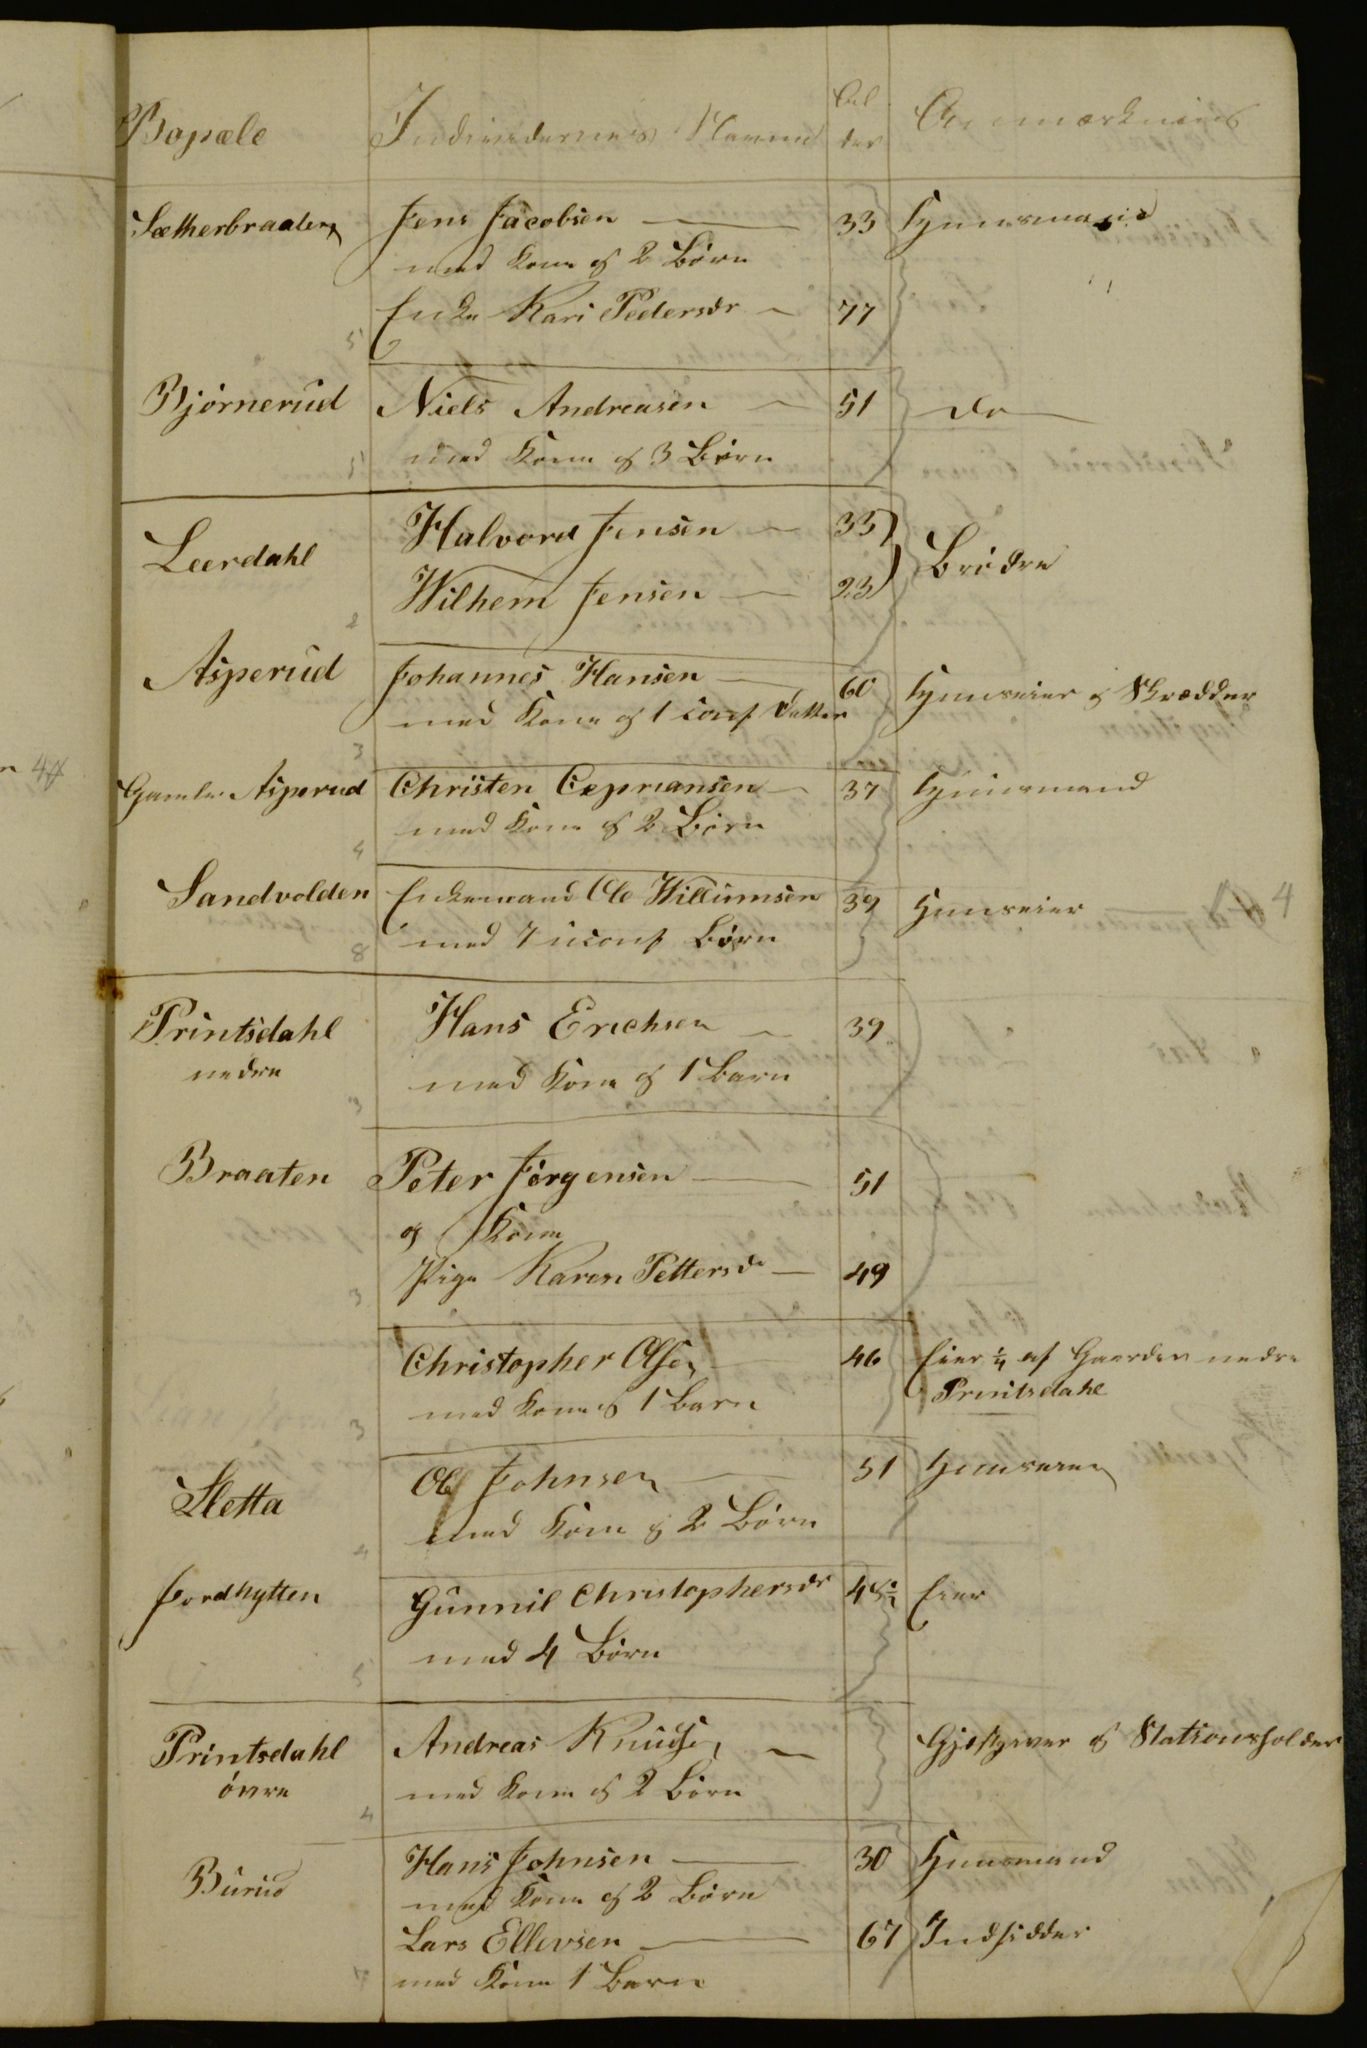 Bopæle Individernes Navne Al der Anmærkning
Sætherbraaten Jens Jacobsen — 33 Huusmand
med Kone og 2 Børn
Enke Kari Pedersdr — 77
5
Bjørnerud Niels Andreasen — 51 do
med Kone og 3 Børn
5
Halvord Jensen — 35)
Leerdahl Brødre
Wilhem Jensen — 23)
2
Asperud Johannes Hansen — 60 Huuseier og Skrædder
med Kone og 1 conf Datter
3
Gamle Asperud Christen Cepriansen — 37 Huusmand
med Kone og 2 Børn
4
Sandvolden Enkemand Ole Willumsen 39 Huuseier
med 7 uconf Børn
8
Printsdahl Hans Erichsen — 39
nedre
med Kone og 1 Barn
3
Braaten Peter Jørgensen — 51
og Kone
Pige Karen Pettersdr — 49
3
Christopher Olsen 46 Eier ¼ af Gaarden nedre
Printsdahl
med Kone og 1 Barn
3
Ole Johnsen — 51 Huuseier
Sletta
med Kone og 2 Børn
4
Jordhytten Gunnil Christophersdr 45½ Eier
med 4 Børn
5
Printsdahl Andreas Knudsen — Gjæstgiver og Stationsholder
øvre
med Kone og 2 Børn
4
Hans Johnsen — 30 Huusmand
Burud
med Kone og 2 Børn
Lars Ellevsen — 67 Indsidder
med Kone 1 Barn
7